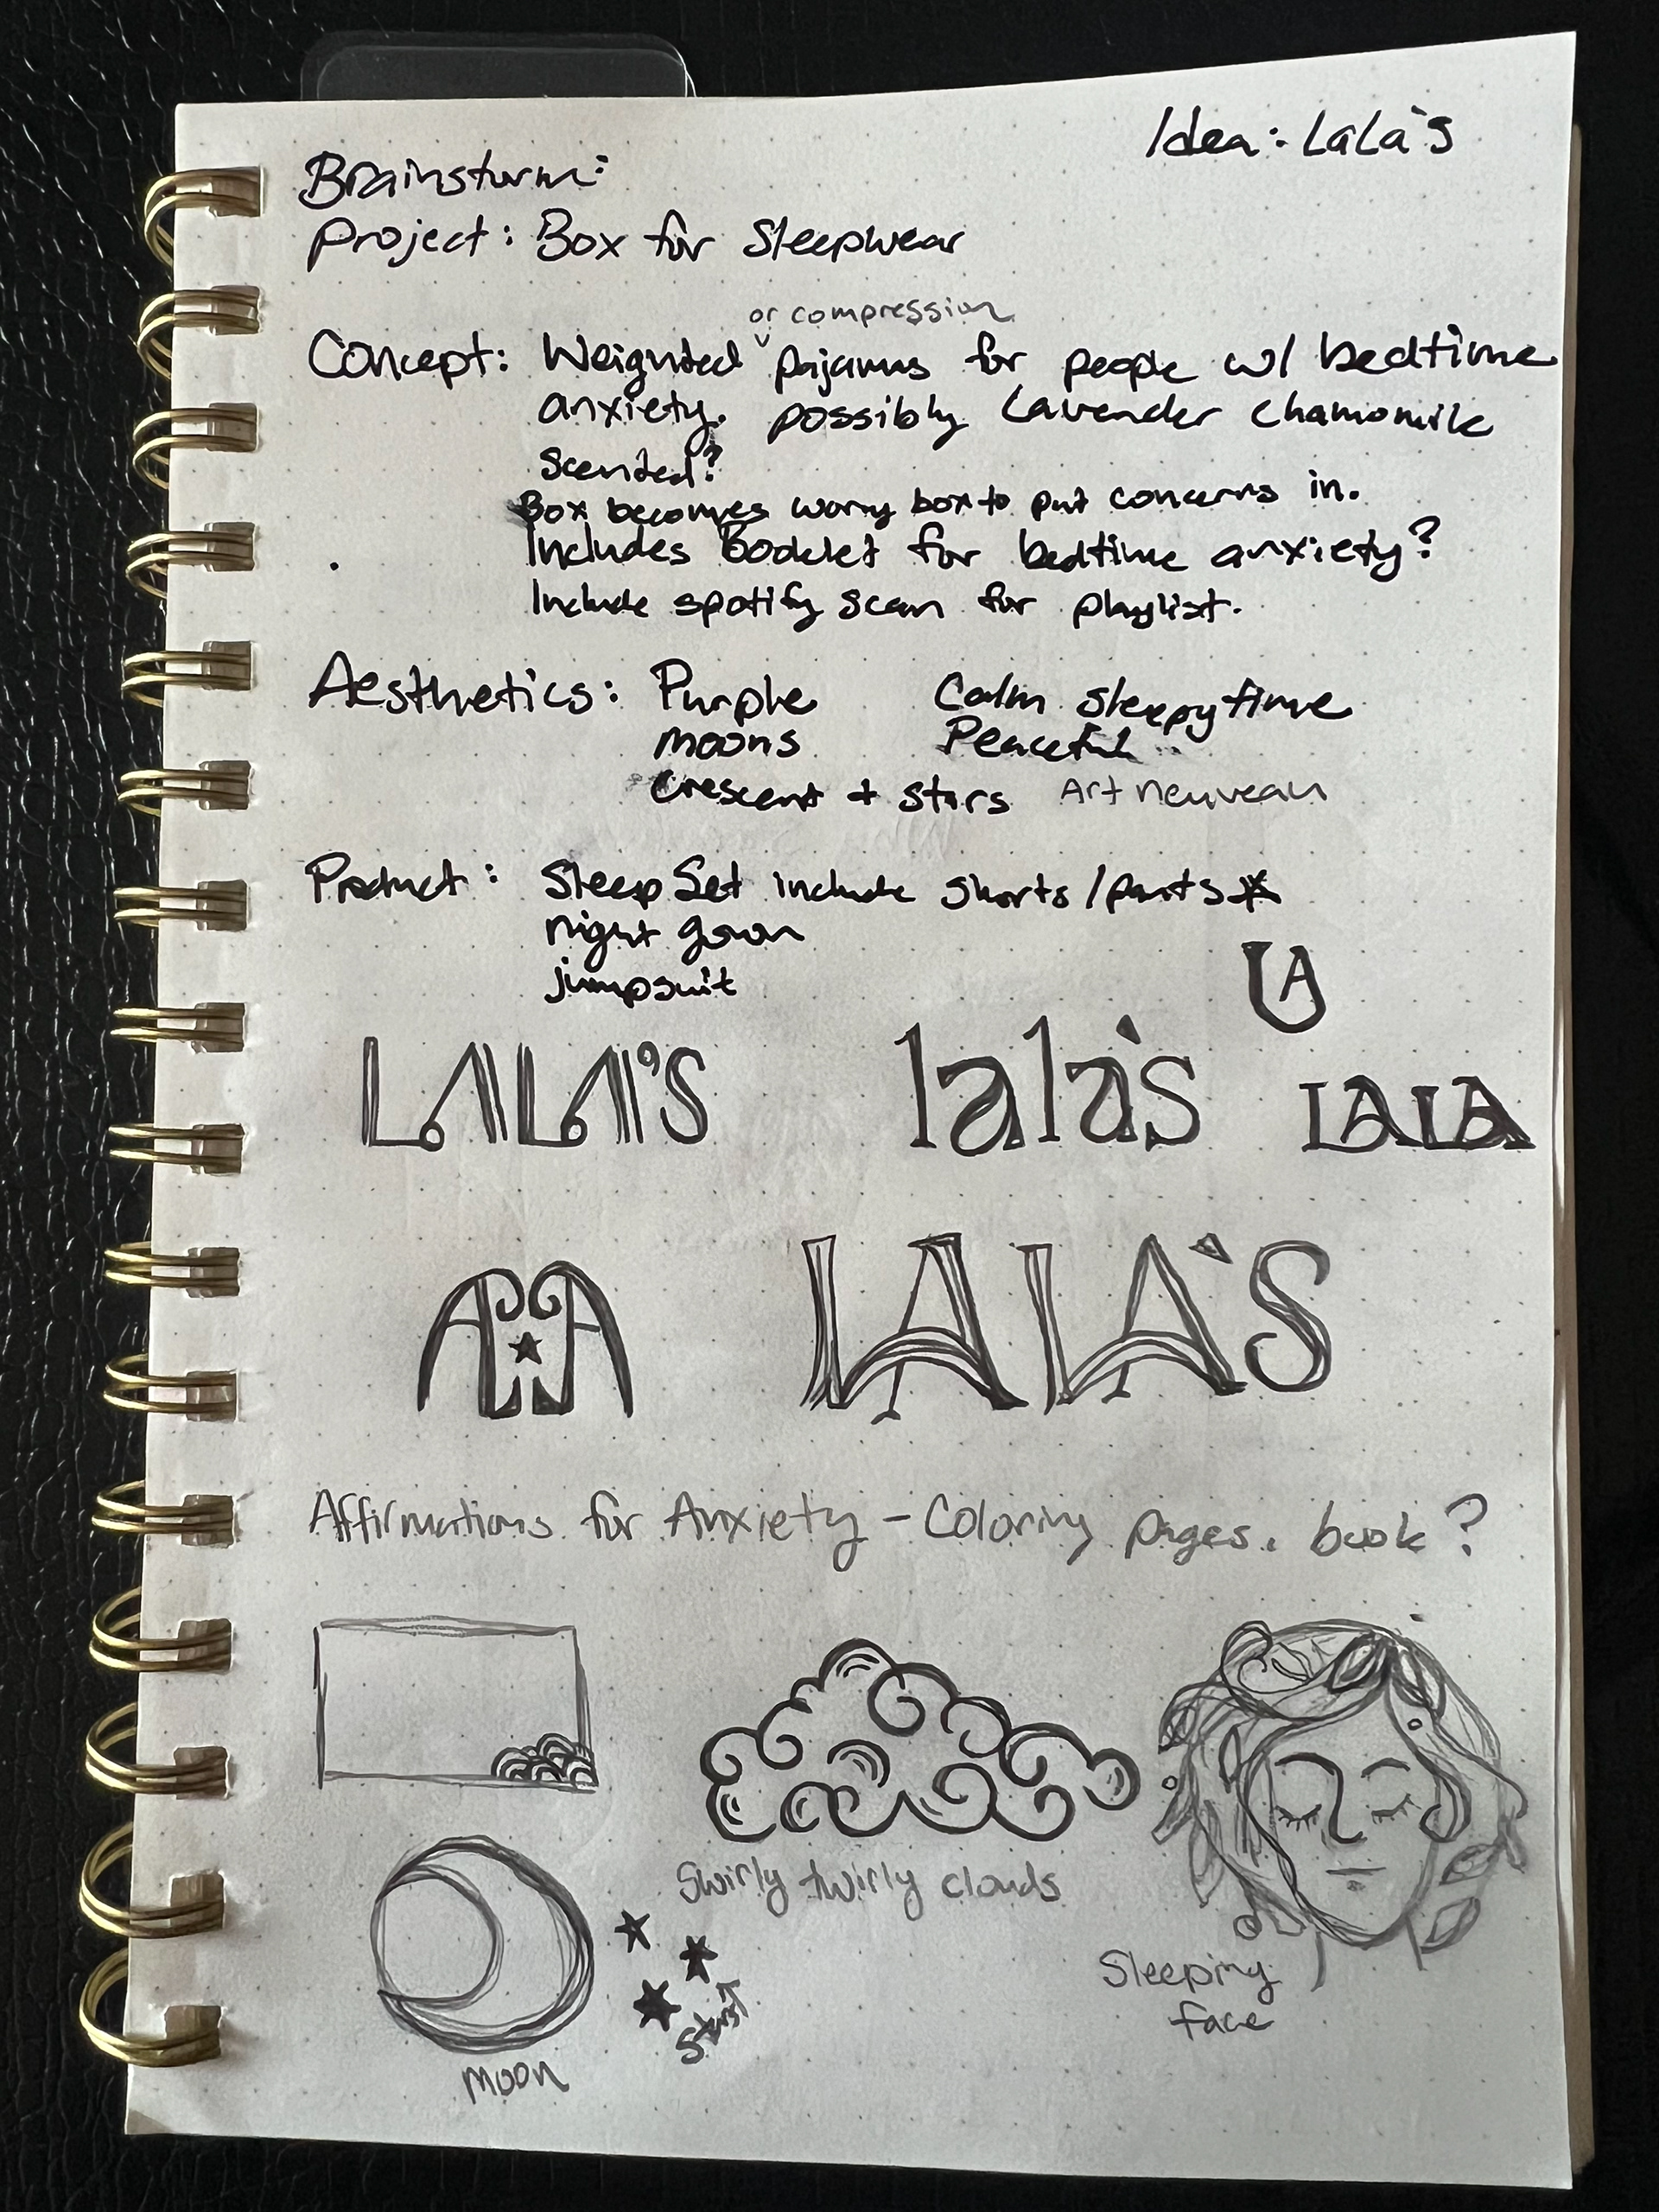 Idea: LaLa's
Brainstorm:
Project: Box for Sleepwear
or compression
Concept: Weighted ˅ pajamas for people w/ bedtime
anxiety. possibly Lavender Chamomile
Scented?
Box becomes worry box to put concerns in.
Includes Booklet for bedtime anxiety?
Include spotify scan for playlist.
Aesthetics: Purple Calm sleepytime
moons Peaceful
Crescent + stars Art neuveau
Product: Sleep Set include shorts/pants*
night gown
jumpsuit
LA
LALA'S lala's LALA
AA LALA'S
Affirmations for Anxiety - Coloring pages. book?
Swirly twirly clouds
Sleeping
face
Stars
moon